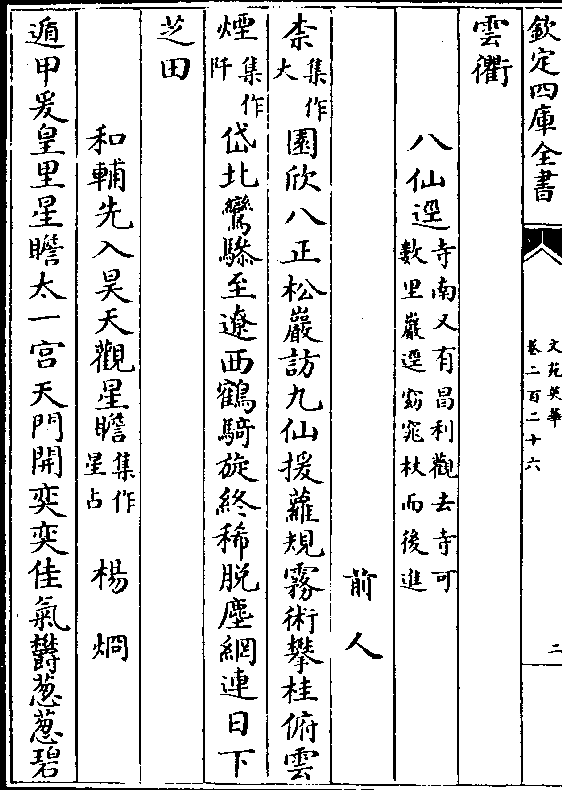 欽定四庫全書
文苑英華
卷二百二十六
二
雲衢
八仙逕寺南又有昌利觀去寺可
數里巖逕窈窕杖而後進
前人
柰集作
大園欣八正松巖訪九仙援蘿規霧術攀桂俯雲
煙集作
阡岱北鸞驂至遼西鶴騎旋終稀脫塵網連日下
芝田
和輔先入昊天觀星瞻集作
星占 楊烱
遁甲爰皇里星瞻太一宫天門開奕奕佳氣欝葱葱碧